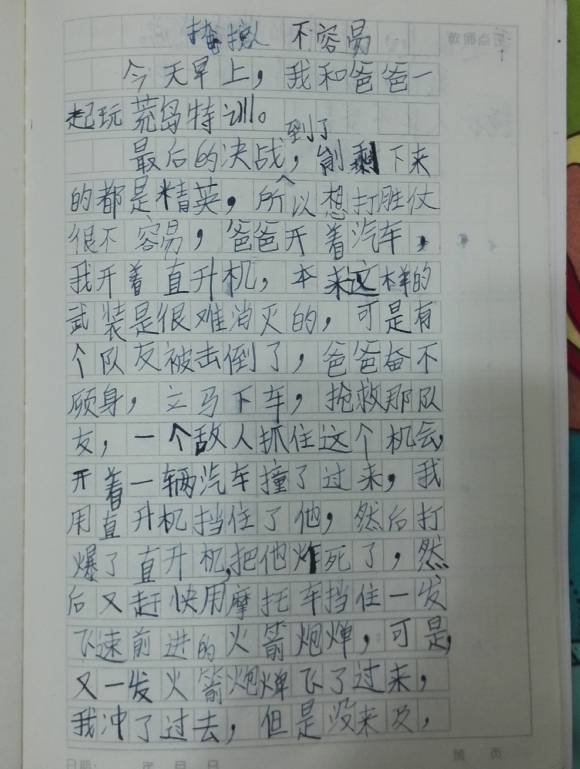 掩撤 不容易
今天早上，我和爸爸一
起玩荒岛特训。
到了
最后的决战，剩下来
的都是精英，所以想打胜仗
很不容易，爸爸开着汽车，
我开着直升机，本来这样的
武装是很难消灭的，可是有
个队友被击倒了，爸爸奋不
顾身，立马下车，抢救那队
友，一个敌人抓住这个机会，
开着一辆汽车撞了过来，我
用直升机挡住了他，然后打
爆了直升机，把他炸死了，然
后又赶快用摩托车挡住一发
飞速前进的火箭炮弹，可是，
又一发火箭炮弹飞了过来，
我冲了过去，但是没来及，
日期： 年 月 日 第 页